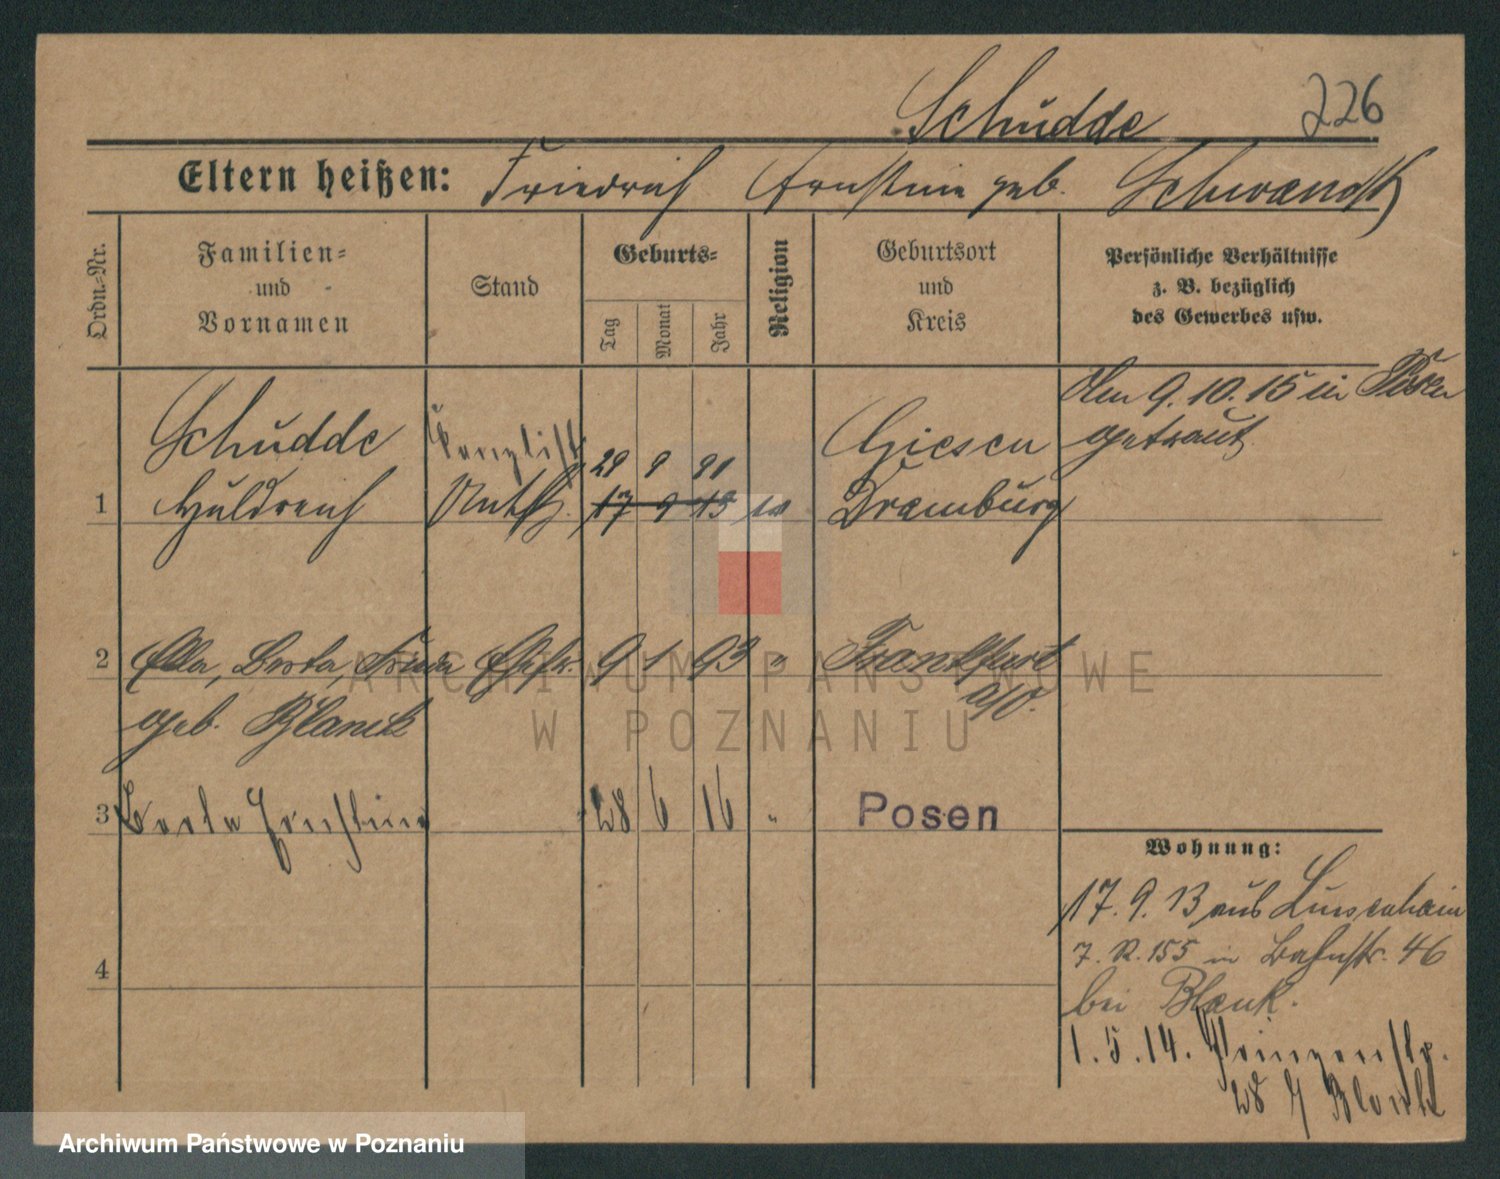 Schudde 226
Eltern heißen: Friedrich Ernstine geb. Schwandt
Ordn.-Nr.
Familien-
und
Vornamen
Stand
Geburts-
Tag
Monat
Jahr
Religion
Geburtsort
und
Kreis
Persönliche Verhältnisse
z. B. bezüglich
des Gewerbes usw.
1
Schudde
Huldreich
Kanzlist
29 9 91
17 9 13 ev
Giesen
Dramburg
Den 9.10.15 in Posen
getraut
2
Ella, Berta, Frieda Ehefr. 9 1 93 " Frankfurt
a/O.
geb. Blanck
3
Berta Ernstine 28 6 16 " Posen
4
Wohnung:
17.9.13 aus Luisenhain
7. R. 155 in Bahnstr. 46
bei Blank.
1.5.14. Prinzenstr.
28 Blank
Archiwum Państwowe
w Poznaniu
Archiwum Państwowe w Poznaniu